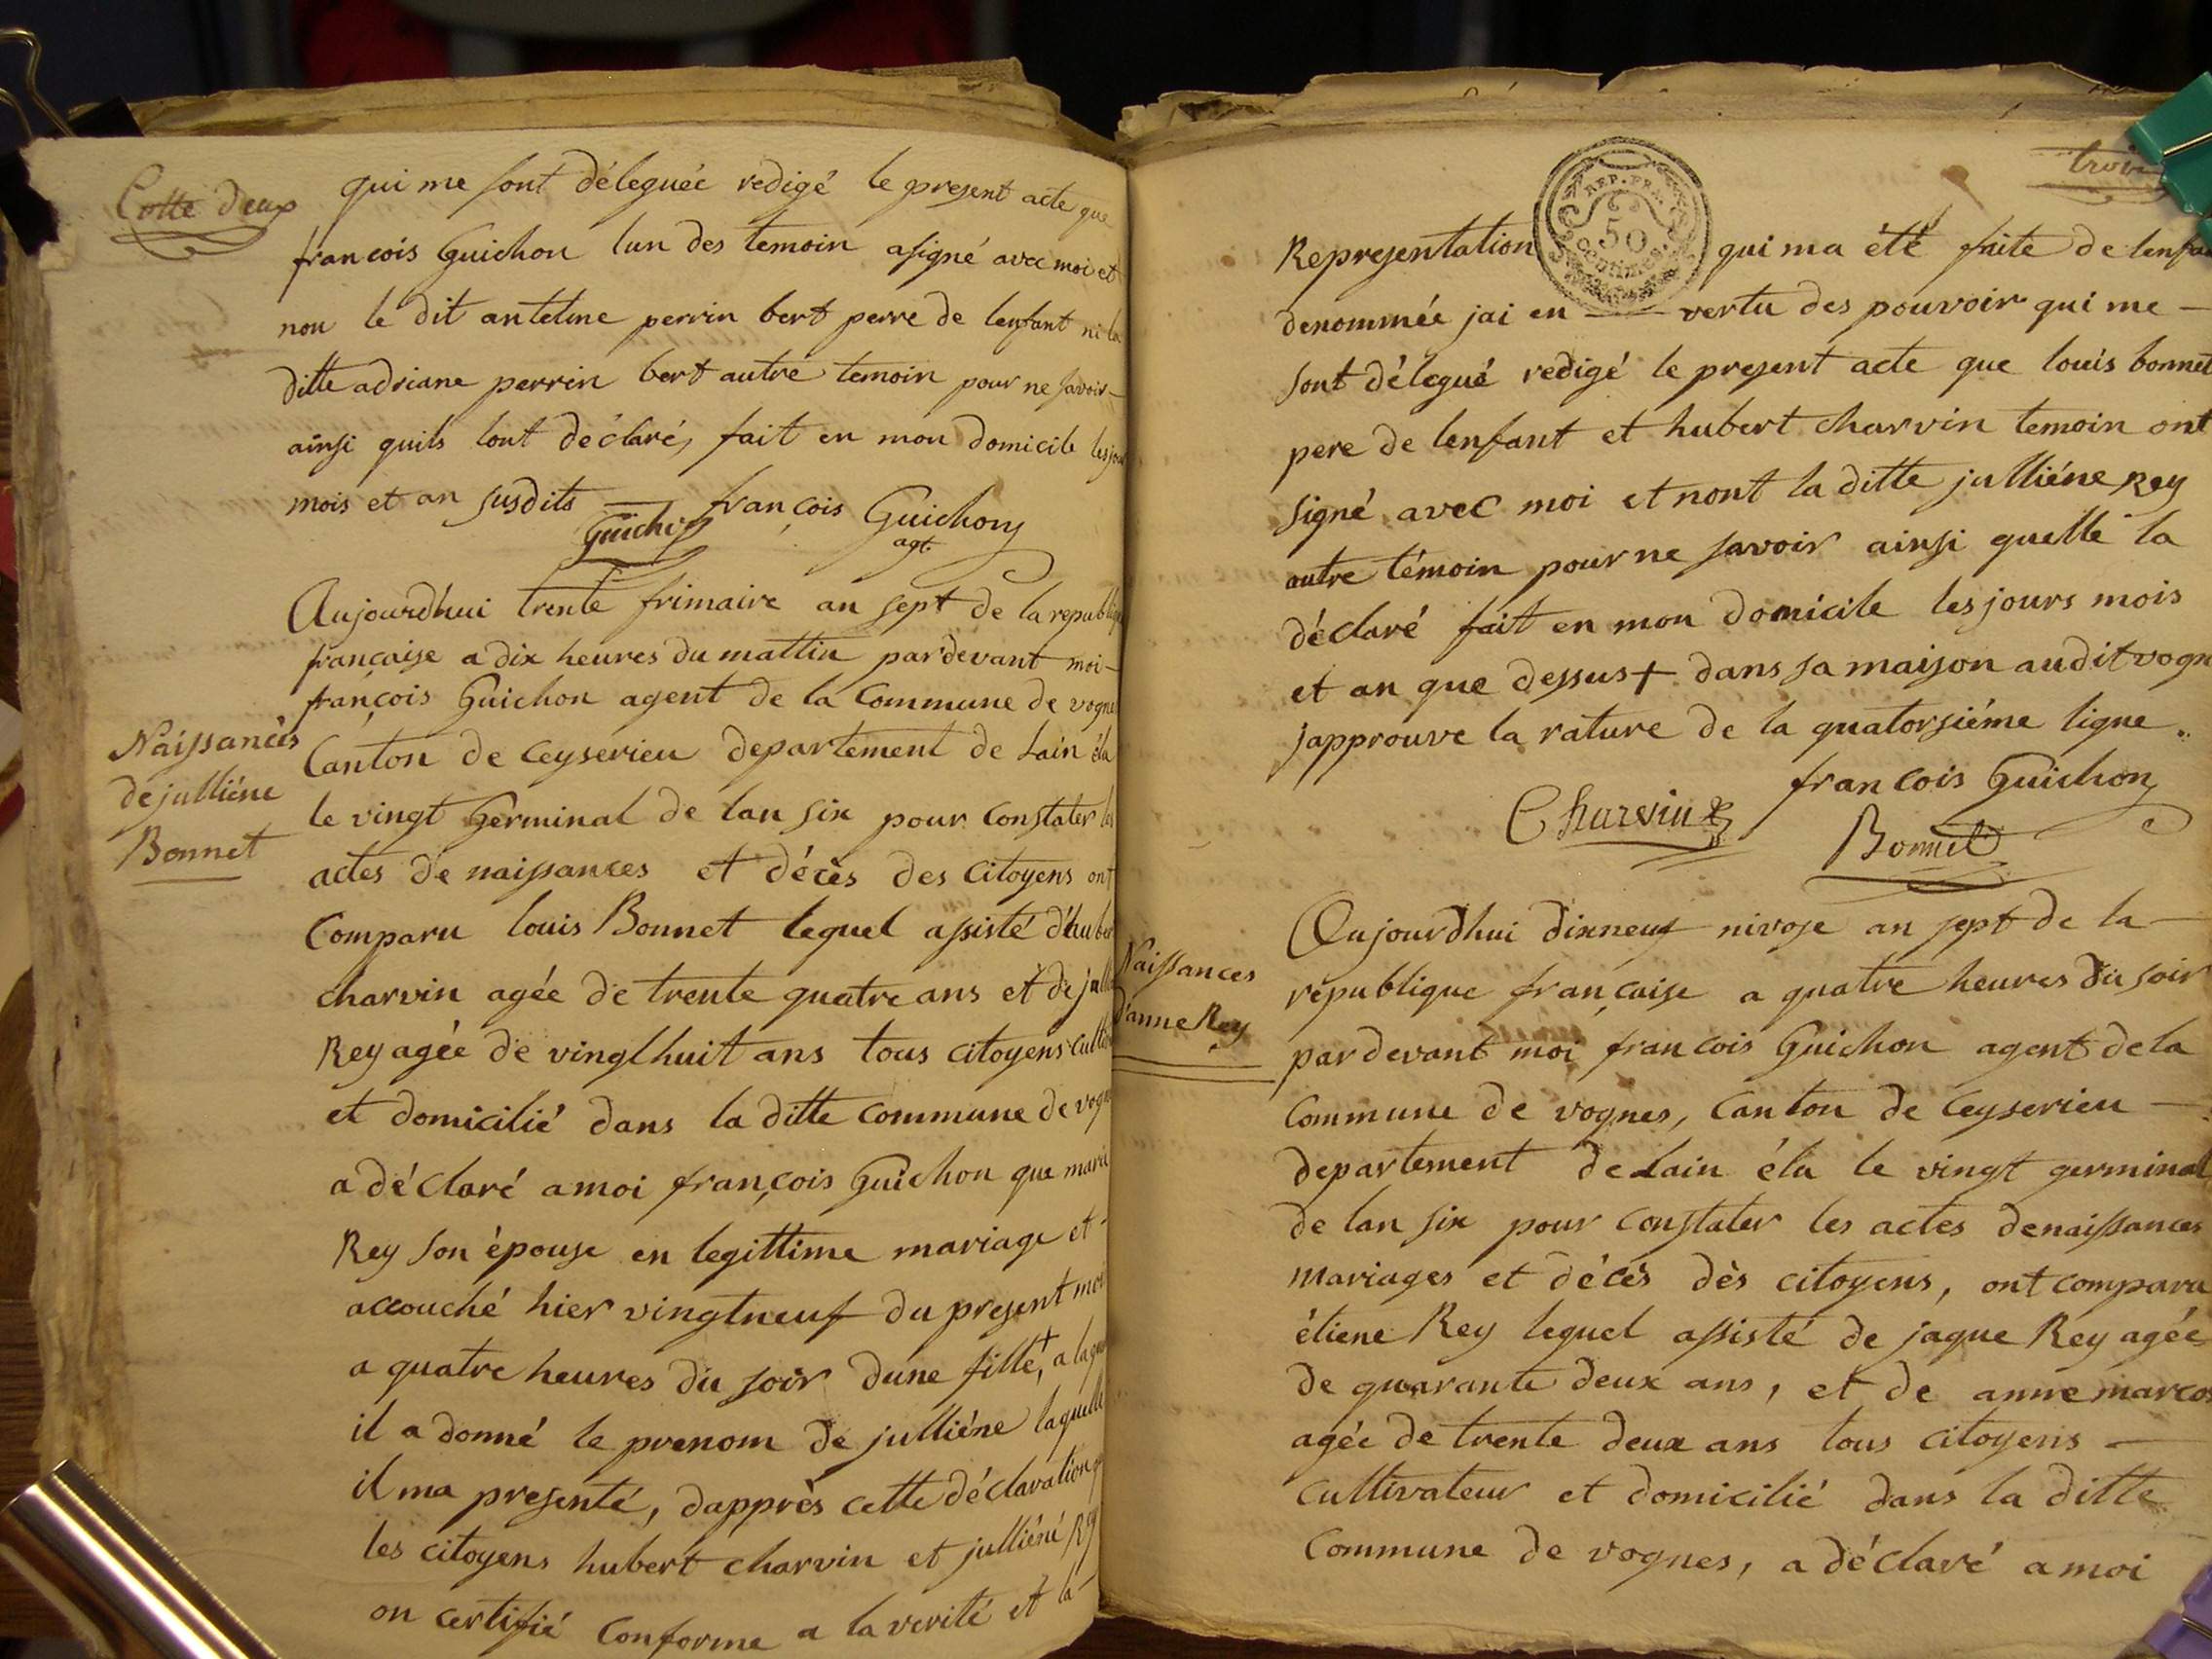 Cotte deux
qui me sont déleguée redigé le present acte que
francois Guichon lun des temoin asigné avec moi et
non le dit antelme perrin bert perre de lenfant ni la
ditte adriane perrin bert autre temoin pour ne savoir
ainsi quils lont déclaré, fait en mon domicile les jour
mois et an susdits françois Guichon
Guichon agt.
Aujourdhui trente frimaire an sept de la republique
francaise a dix heures du mattin pardevant moi
françois Guichon agent de la Commune de vogne
Canton de Ceyserieu departement de Lain élu
le vingt Germinal de lan six pour Constater les
actes de naissances et décès des Citoyens ont
Comparu louis Bonnet lequel assisté d'hubert
charvin agée de trente quatre ans et de
Rey agée de vingt huit ans tous citoyens
et domicilié dans la ditte commune de vogne
a déclaré a moi françois Guichon que
Rey son épouse en legittime mariage et
accouché hier vingtneuf du present mois
a quatre heures du soir dune fille,+ a la
il a donné le prenom de julliéne laquelle
il ma presenté, dapprès cette déclaration
les citoyens hubert charvin et julliéne Rey
on certifié Conforme a la verité et la
Naissances
de julliéne
Bonnet
REP. FRA.
50
Centimes
Representation qui ma été faite de
denommée jai en vertu des pouvoir qui me
sont délegué redigé le present acte que louis bonnet
pere de lenfant et hubert charvin temoin ont
signé avec moi et nont la ditte julliéne Rey
autre témoin pour ne savoir ainsi quelle la
déclaré fait en mon domicile les jours mois
et an que dessus + dans sa maison audit
japprouve la rature de la quatorsiéme ligne
francois Guichon
Charvin
Bonnet
Naissances
d'anne Rey
Aujourdhui dixneuf nivose an sept de la
république française a quatre heures du soir
pardevant moi francois Guichon agent de la
Commune de vognes, Canton de Ceyserieu
departement de Lain élu le vingt germinal
de lan six pour Constater les actes de naissances
mariages et décès dès citoyens, ont comparu
étiene Rey lequel assisté de jaque Rey agée
de quarante deux ans, et de anne
agée de trente deux ans tous citoyens
Cultivateur et domicilié dans la ditte
Commune de vognes, a déclaré a moi